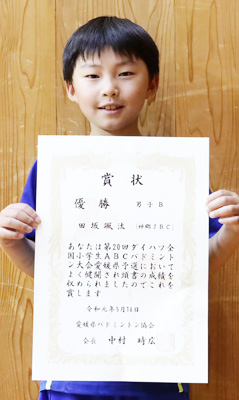 賞状
優勝 男子B
田坂颯汰 (神郷JBC)
あなたは第20回ダイハツ全
国小学生ABCバドミント
ン大会愛媛県予選において
よく健闘され頭書の成績を
収められましたのでこれを
賞します
令和元年5月18日
愛媛県バドミントン協会
会長 中村時広